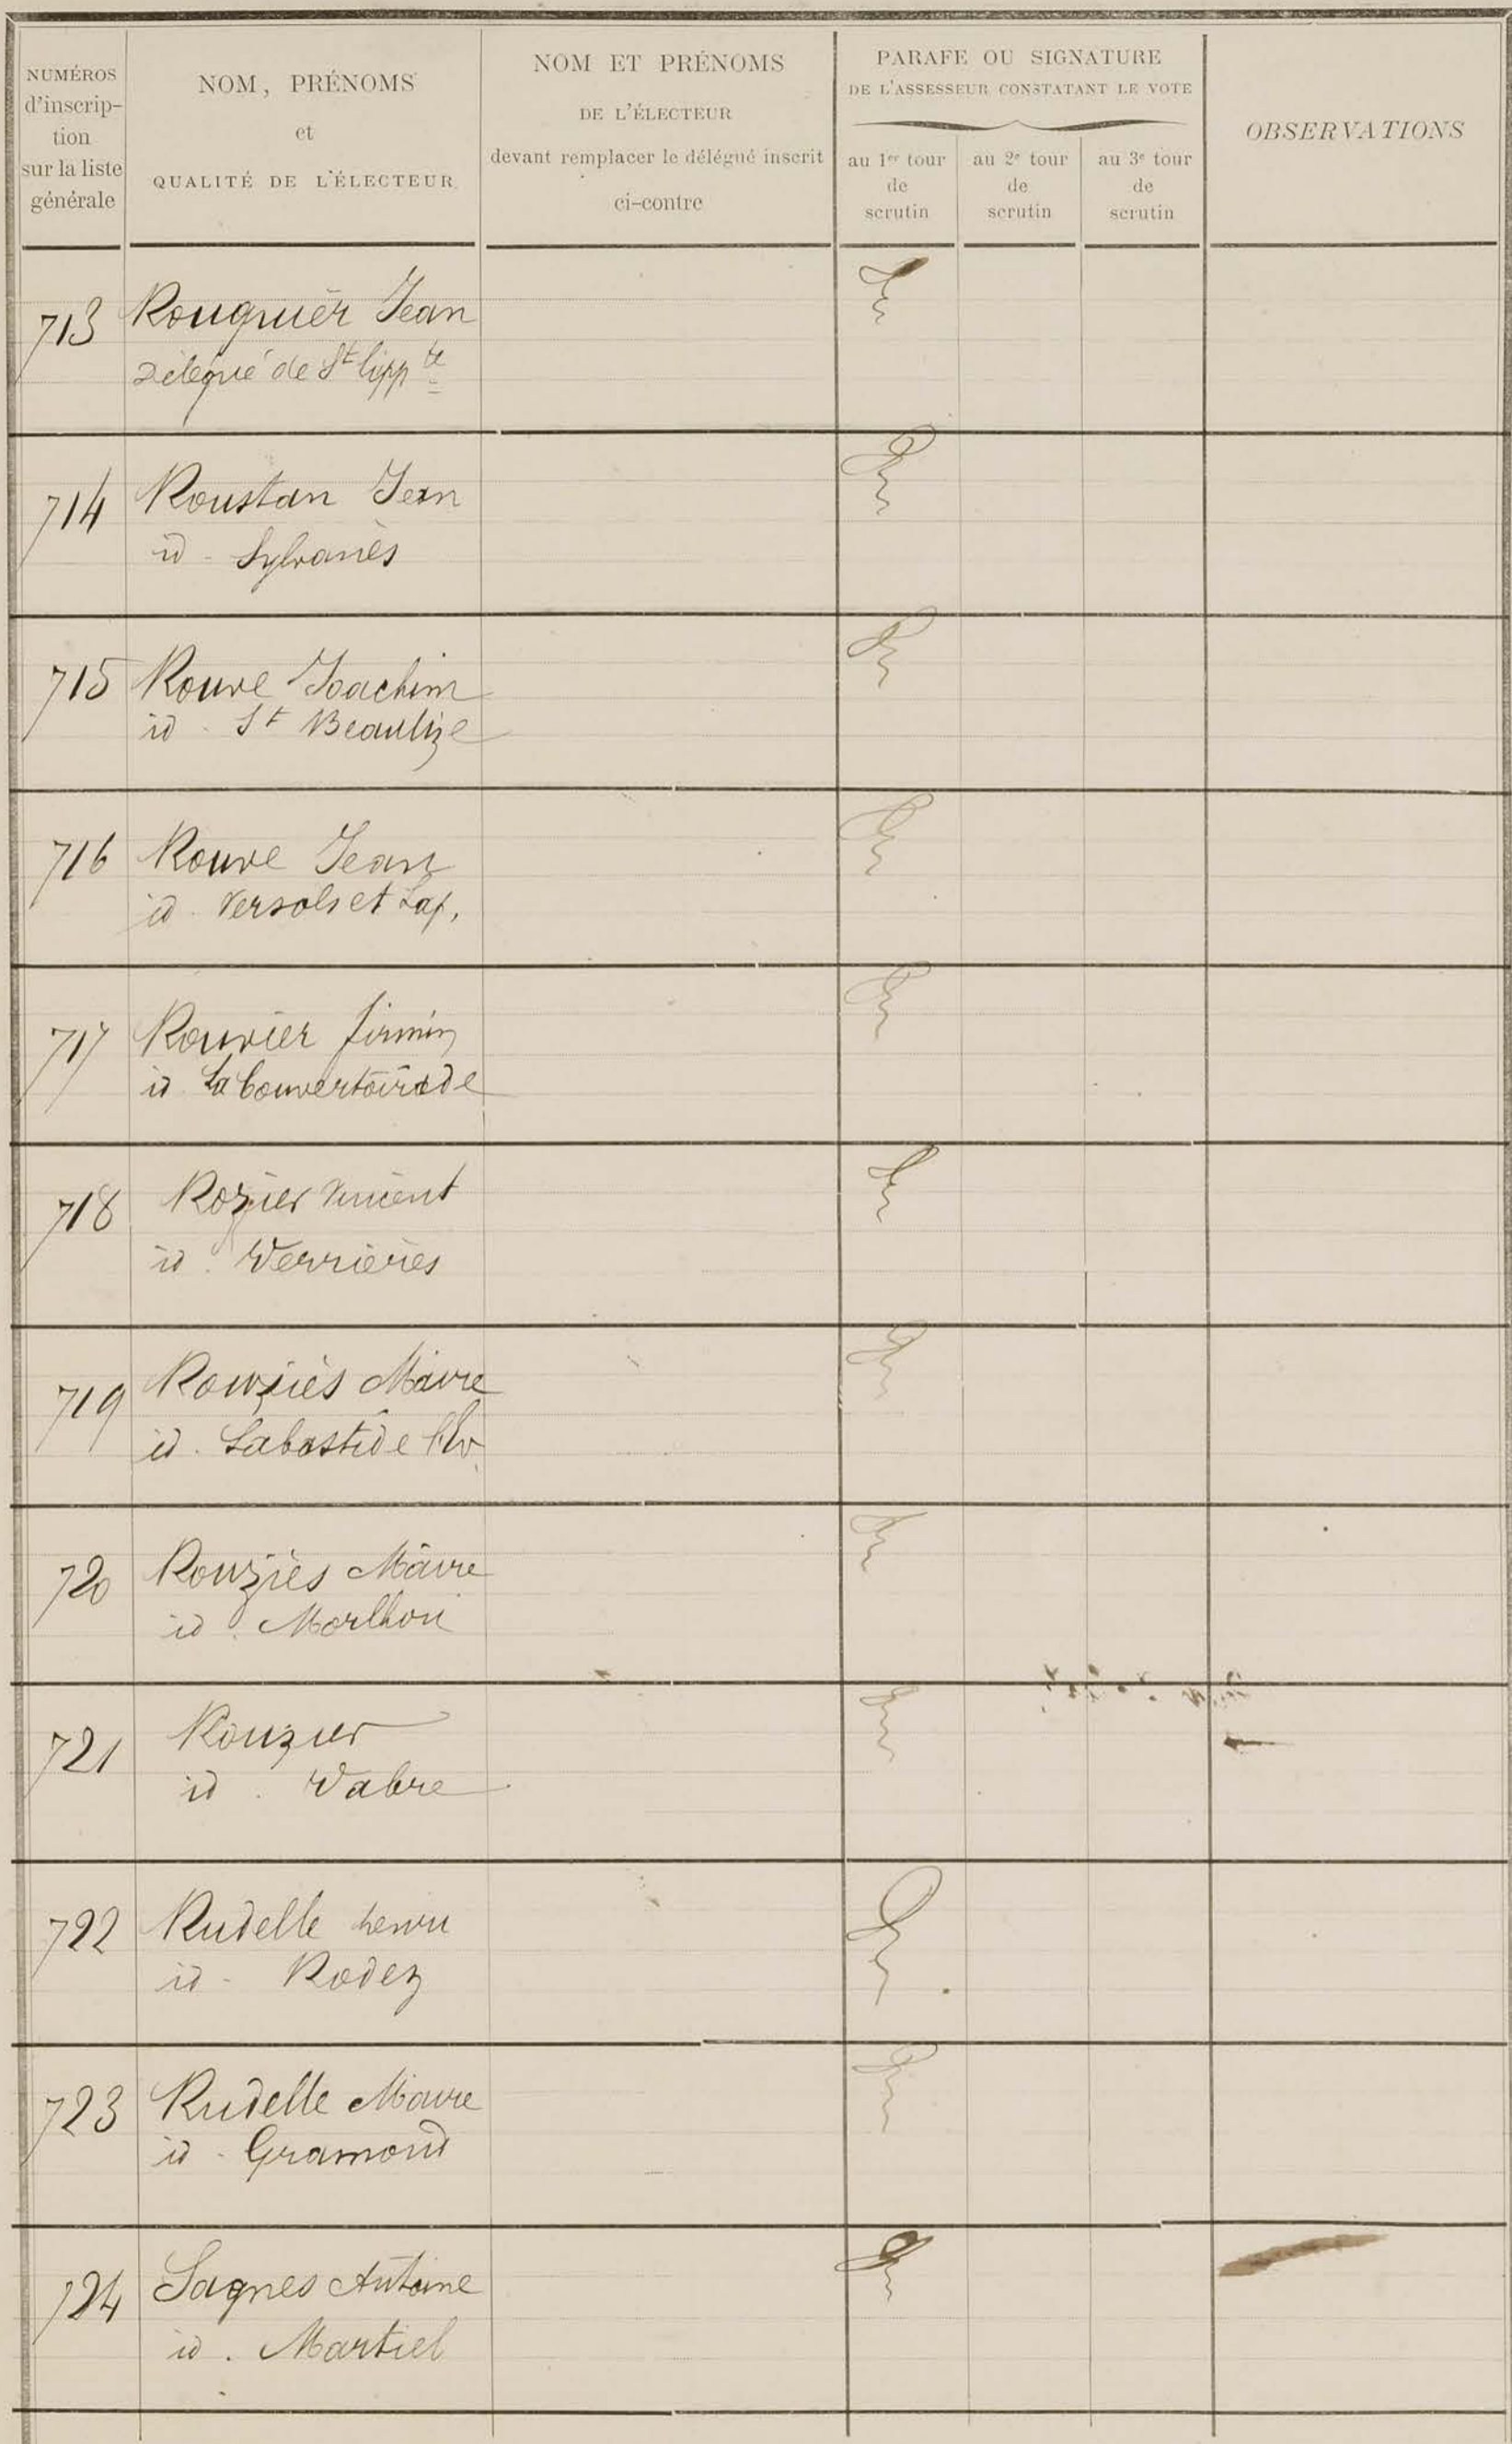 NUMÉROS
d'inscrip-
tion
sur la liste
générale
NOM, PRÉNOMS
et
QUALITÉ DE L'ÉLECTEUR
NOM ET PRÉNOMS
DE L'ÉLECTEUR
devant remplacer le délégué inscrit
ci-contre
PARAFE OU SIGNATURE
DE L'ASSESSEUR CONSTATANT LE VOTE
au 1er tour
de
scrutin
au 2e tour
de
scrutin
au 3e tour
de
scrutin
OBSERVATIONS
713 Rouquier Jean
Délégué de St
714 Roustan Jean
id - Sylvanès
715 Rouve Joachim
id - St Beaulize
716 Rouve Jean
id - Versols et Lap,
717 Rouvier firmin
id La Couvertoirade
718 Rozier Vincent
id . Verrières
719 Rouziès Maire
id . Labastide
720 Rouziès Maire
id . Morlhon
721 Rouzier
id . Vabre
722 Rudelle henri
id - Rodez
723 Rudelle Maire
id - Gramond
724 Sagnes Antoine
id . Martiel